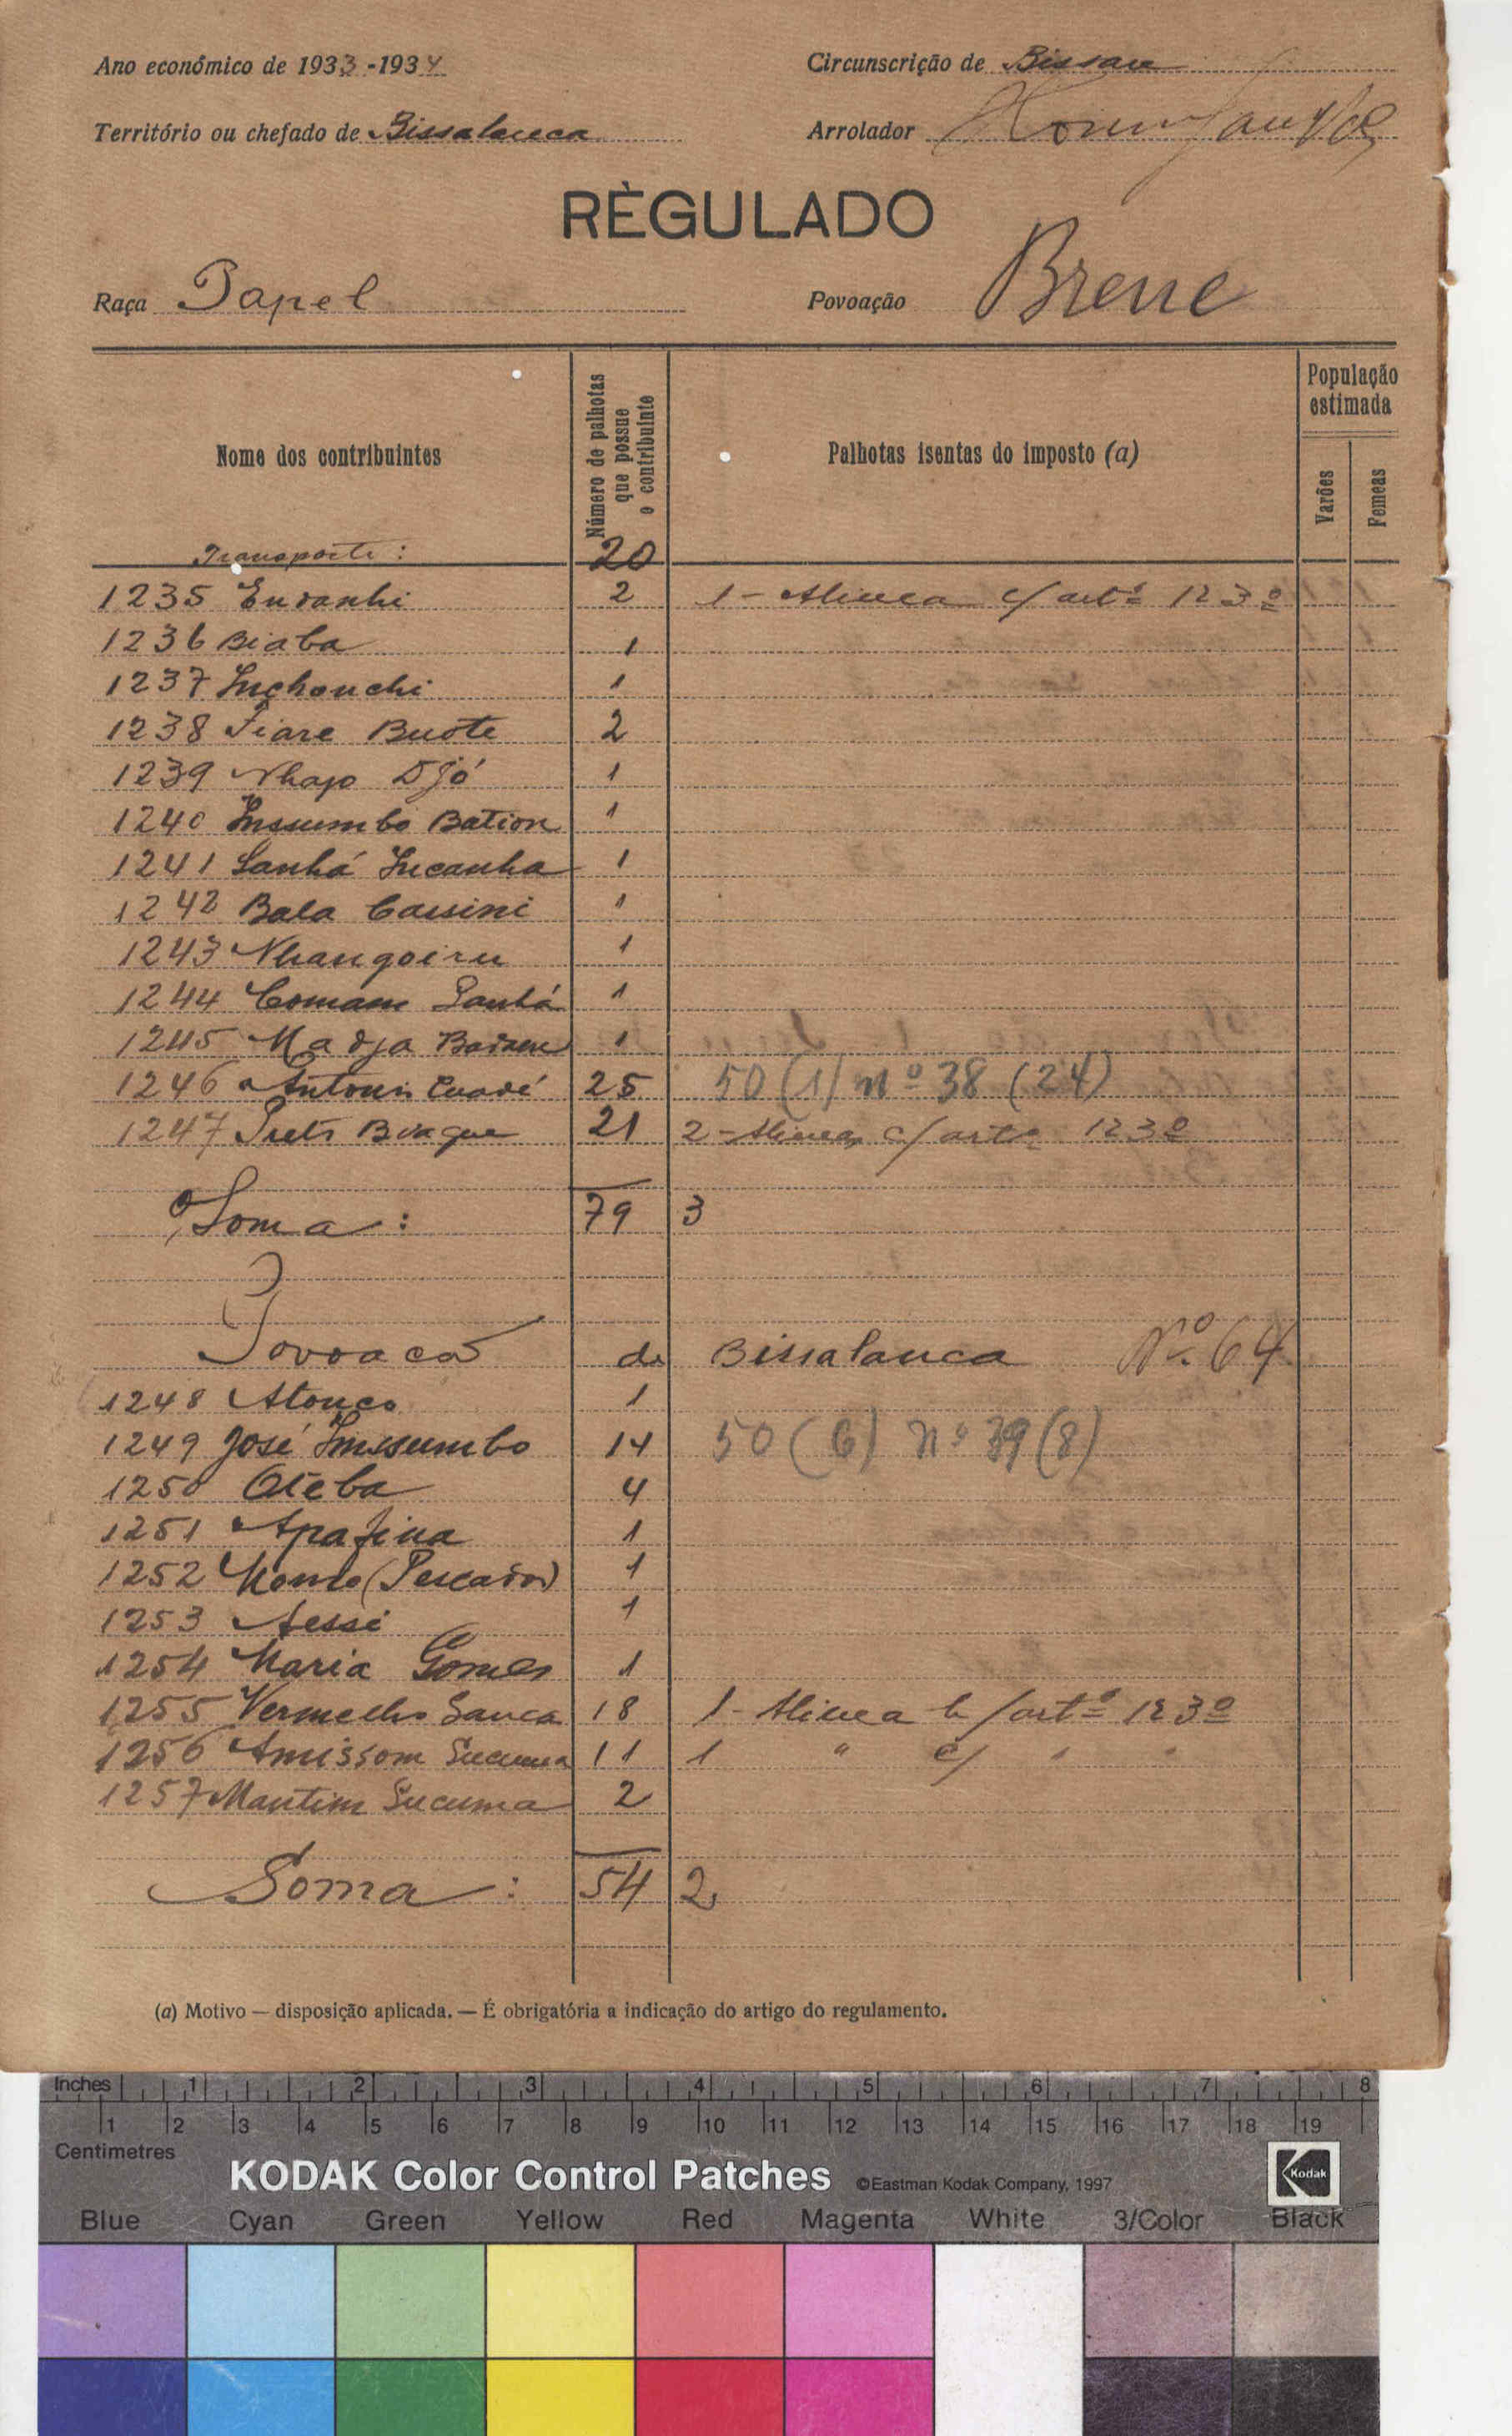 Ano económico de 1933-1934
Circunscrição de Bissau
Território ou chefado de Bissalanca
Arrolador
RÈGULADO
Raça Papel
Povoação Brene
Nome dos contribuintes
Número de palhotas que possue o contribuinte
Palhotas isentas do imposto (a)
População estimada
Varões
Femeas
Transporte: 20
1235 Endanhi 2 1- Alinea c/ artº 123º
1236 Biaba 1
1237 Inchonchi 1
1238 Fiare Buote 2
1239 Nhapo Djó 1
1240 Inssumbo Bation 1
1241 Sanhá Incanha 1
1242 Bala Cassini 1
1243 Nhangoiru 1
1244 Comam Sanhá 1
1245 Madja 1
1246 Antoni 25 50 (1) nº 38 (24)
1247 21 2- Alinea c/ artº 123º
Soma: 79 3
Povoação de Bissalanca Nº 64
1248 Atonco 1
1249 José Inssumbo 14 50 (6) nº 39 (8)
1250 Otéba 4
1251 Apafina 1
1252 (Pescador) 1
1253 Aessé 1
1254 Maria Gomes 1
1255 Vermelho Sanca 18 1- Alinea b/ artº 123º
1256 Amissom Sucuma 11 1 " c/ " "
1257 Mantim Sucuma 2
Soma: 54 2
(a) Motivo — disposição aplicada. — É obrigatória a indicação do artigo do regulamento.
Inches 1 2 3 4 5 6 7 8
1 2 3 4 5 6 7 8 9 10 11 12 13 14 15 16 17 18 19
Centimetres
KODAK Color Control Patches ©Eastman Kodak Company, 1997 Kodak
Blue Cyan Green Yellow Red Magenta White 3/Color Black